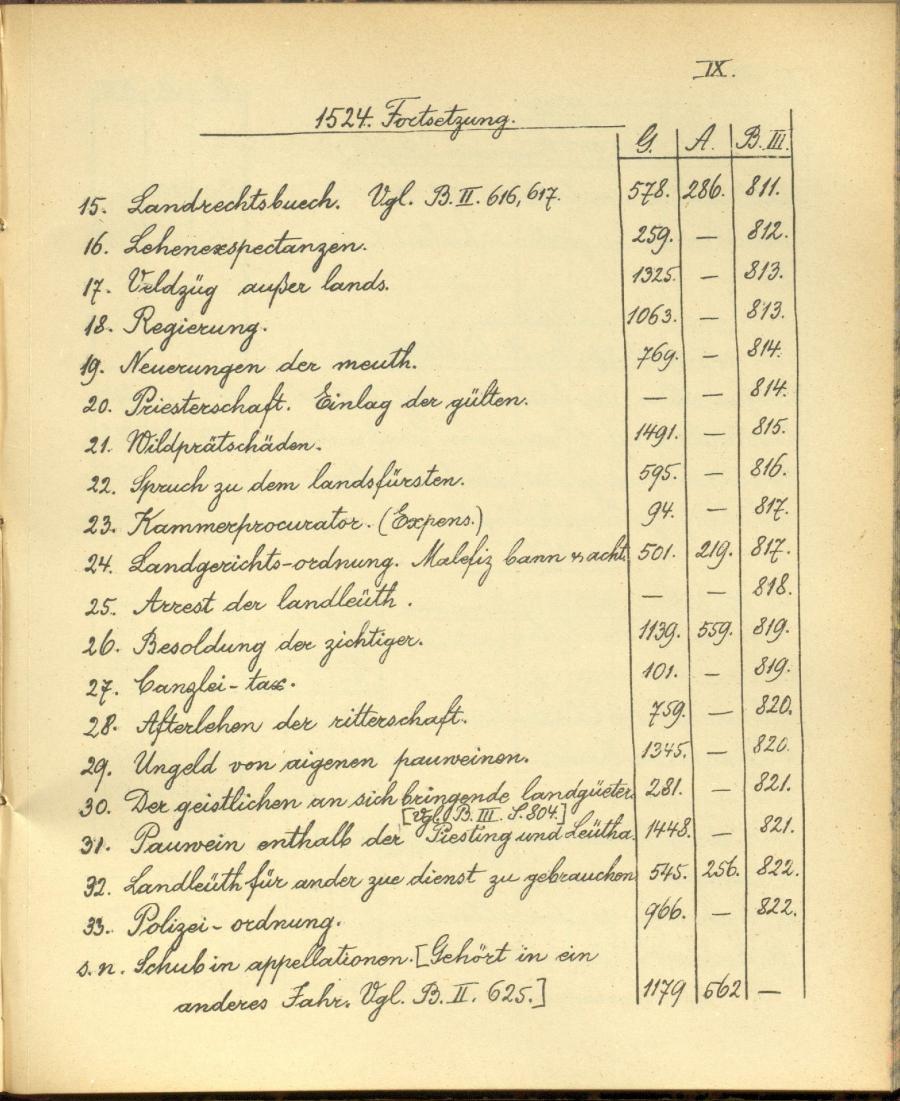 IX.
1524. Fortsetzung.
G. A. B. III.
15. Landrechtsbuech. Vgl. B. II. 616, 617. 578. 286. 811.
16. Lehenexspectanzen. 259. — 812.
17. Veldzüg außer lands. 1325. — 813.
18. Regierung. 1063. — 813.
19. Neuerungen der meuth. 769. — 814.
20. Priesterschaft. Einlag der gülten. — — 814.
21. Wildprätschäden. 1491. — 815.
22. Spruch zu dem landsfürsten. 595. — 816.
23. Kammerprocurator. (Expens.) 94. — 817.
24. Landgerichts-ordnung. Malefiz bann u acht. 501. 219. 817.
25. Arrest der landleüth. — — 818.
26. Besoldung der zichtiger. 1139. 559. 819.
27. Canzlei-tax. 101. — 819.
28. Afterlehen der ritterschaft. 759. — 820.
29. Ungeld von aigenen pauweinen. 1345. — 820.
30. Der geistlichen an sich bringende landgüeter. 281. — 821.
[Vgl. B. III. S. 804.]
31. Pauwein enthalb der Piesting und Leütha. 1448. — 821.
32. Landleüth für ander zue dienst zu gebrauchen 545. 256. 822.
33. Polizei-ordnung. 966. — 822.
s. n. Schub in appellationen. [Gehört in ein
anderes Jahr. Vgl. B. II. 625.] 1179 562 —